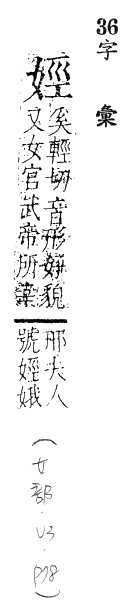 36
字彙
娙
奚輕切音形好貌
又女官武帝所製
邢夫人
號娙娥
(女部.V3.P78)